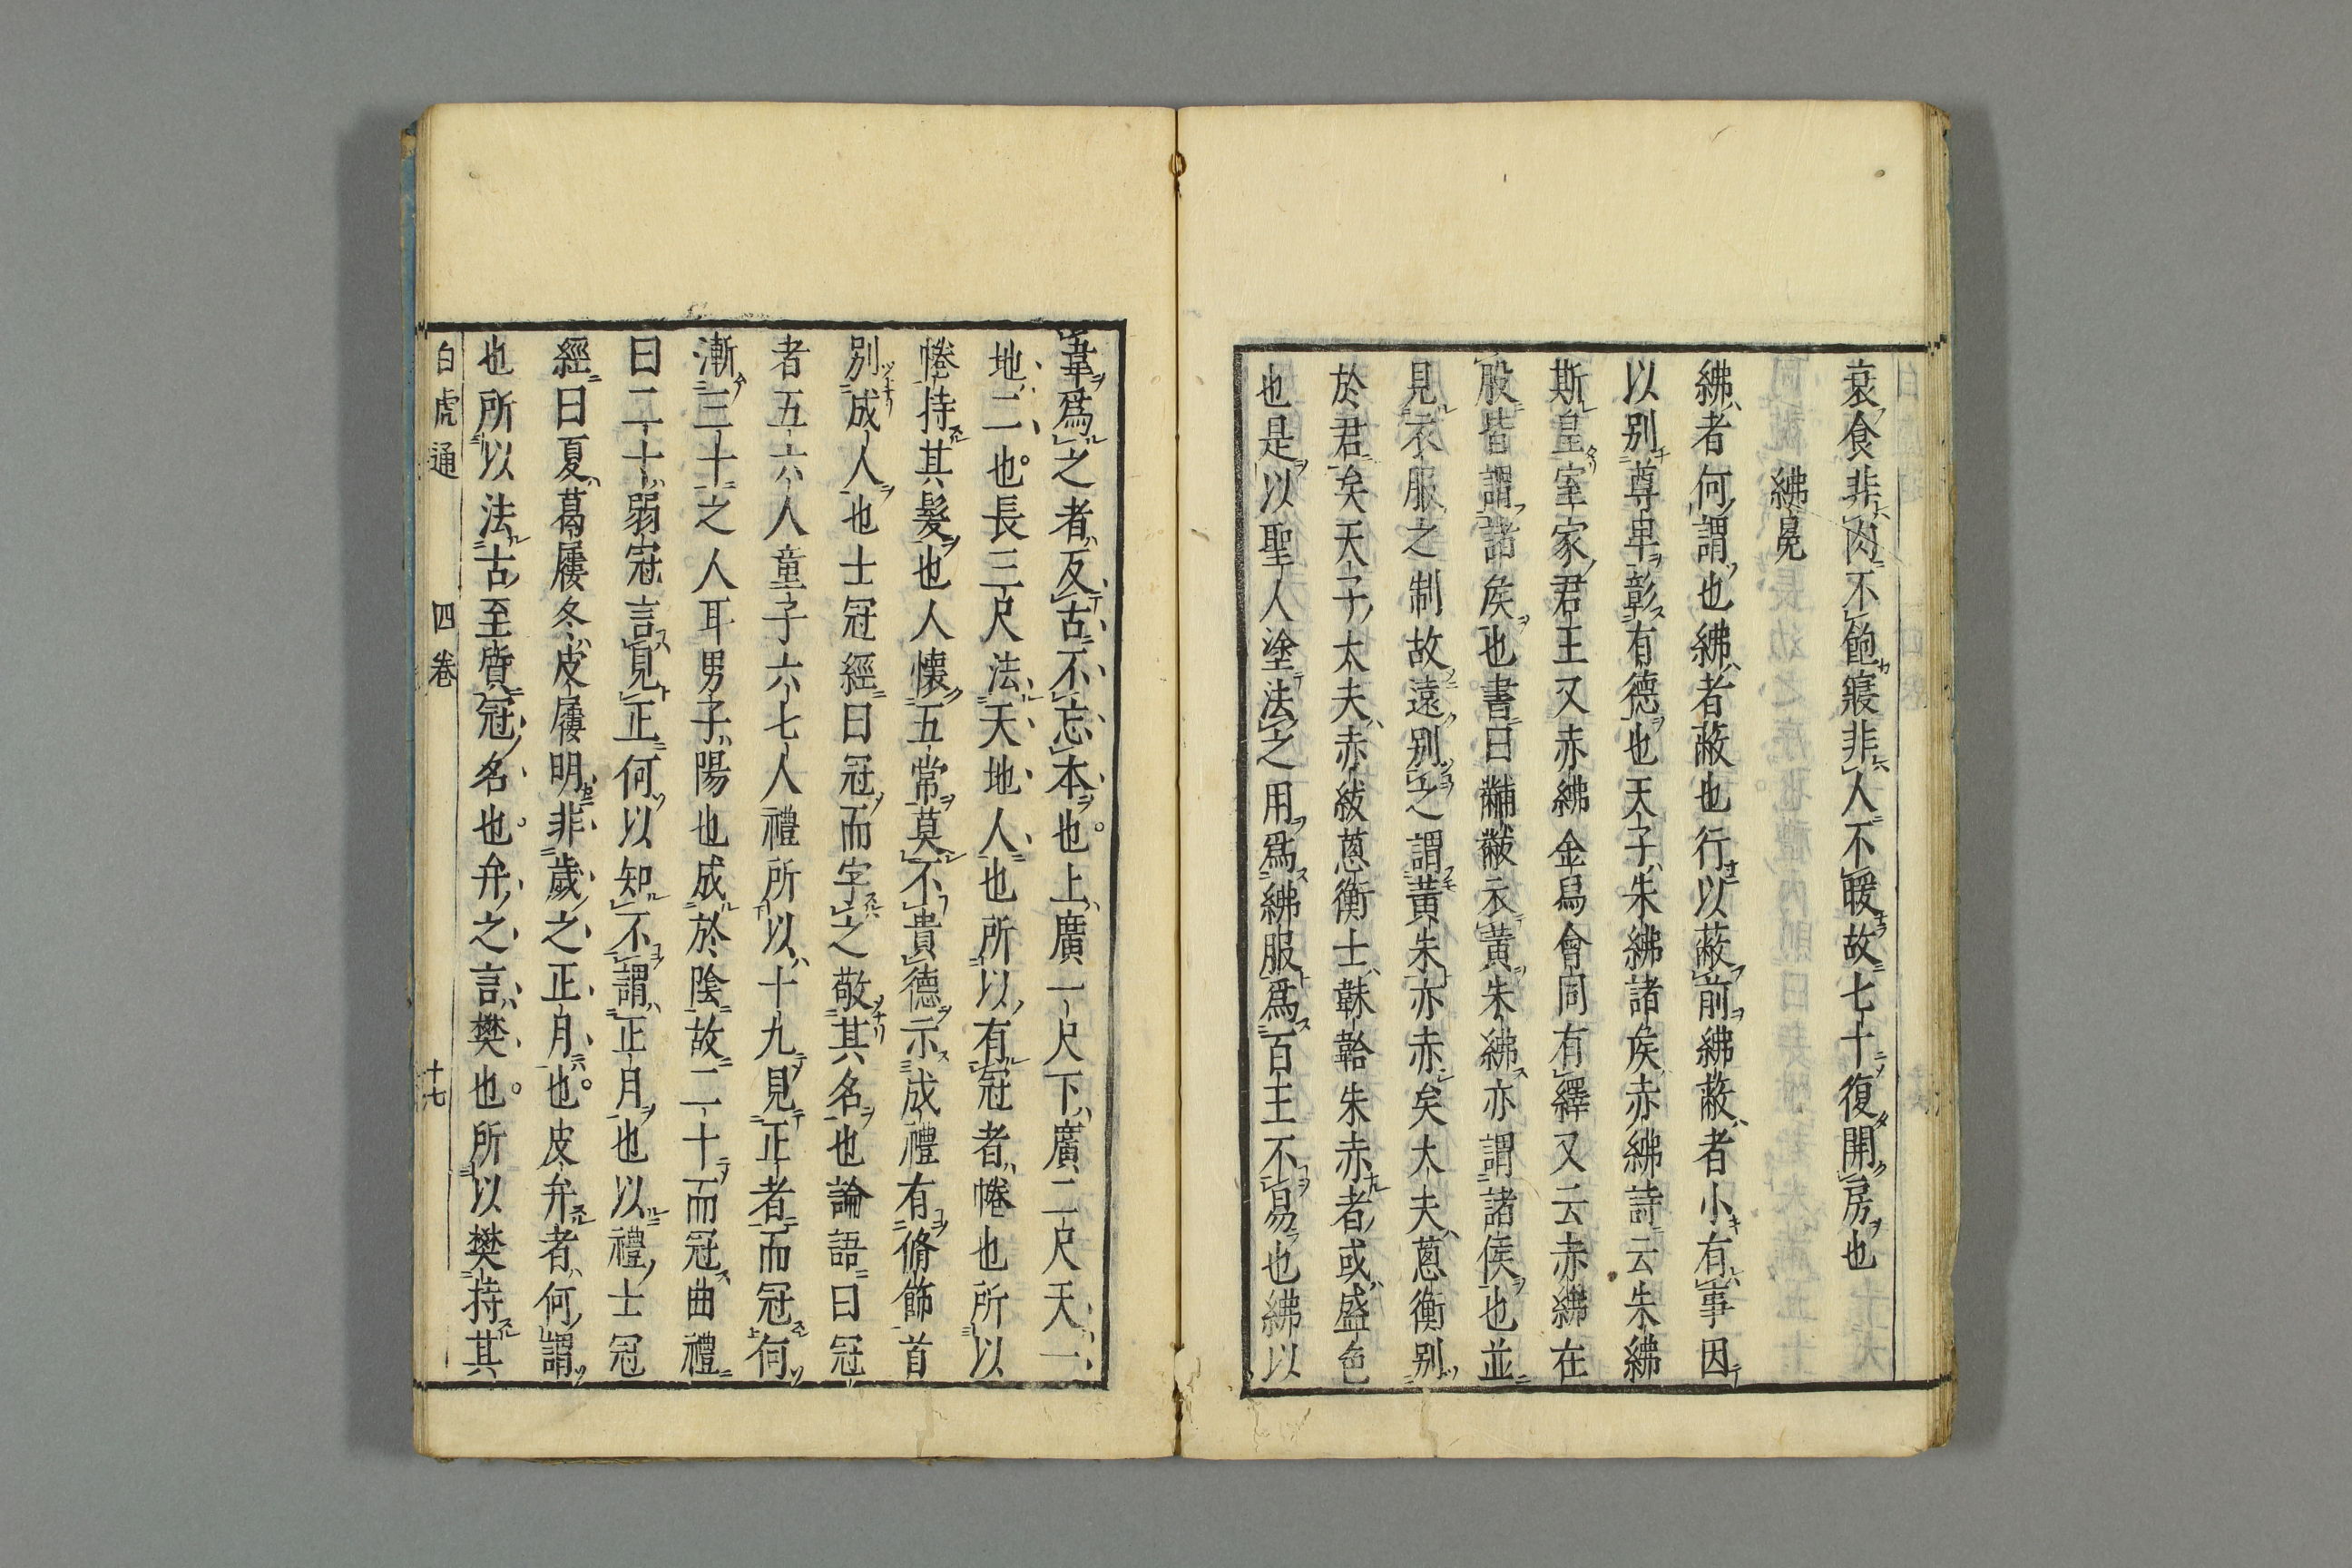 衰食非肉不飽寢非人不暖故七十復開房也
紼冕
紼者何謂也紼者蔽也行以蔽前紼蔽者小有事因
以別尊卑彰有德也天子朱紼諸矦赤紼詩云朱紼
斯皇室家君王又赤紼金舄會同有繹又云赤紼在
股皆謂諸矦也書曰黼黻衣黃朱紼亦謂諸侯也並
見衣服之制故遠別之謂黃朱亦赤矣大夫蔥衡別
於君矣天子太夫赤紱蔥衡士韎韐朱赤者或盛色
也是以聖人塗法之用爲紼服爲百王不易也紼以
韋爲之者反古不忘本也上廣一尺下廣二尺天一
地二也長三尺法天地人也所以有冠者惓也所以
惓持其髮也人懷五常莫不貴德示成禮有脩飾首
別成人也士冠經曰冠而字之敬其名也論語曰冠
者五六人童子六七人禮所以十九見正者而冠何
漸三十之人耳男子陽也成於陰故二十而冠曲禮
曰二十弱冠言見正何以知不謂正月也以禮士冠
經曰夏葛屨冬皮屨明非歲之正月也皮弁者何謂
也所以法古至質冠名也弁之言樊也所以樊持其
白虎通 四卷 十七